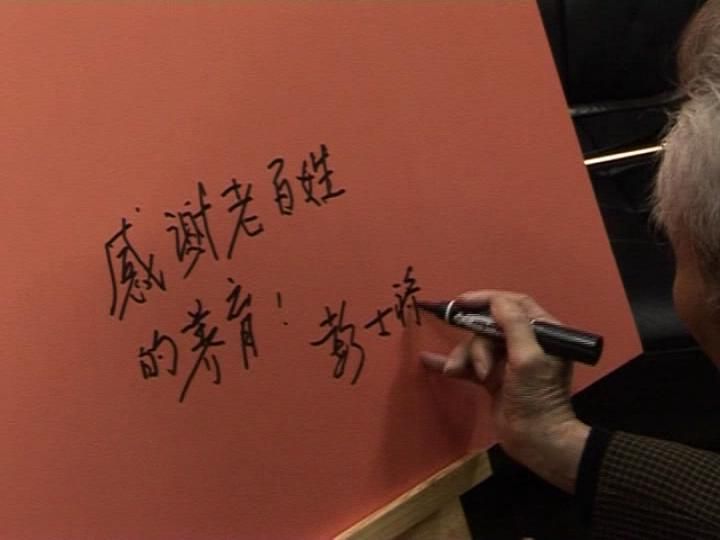 感谢老百姓
的养育! 彭士禄